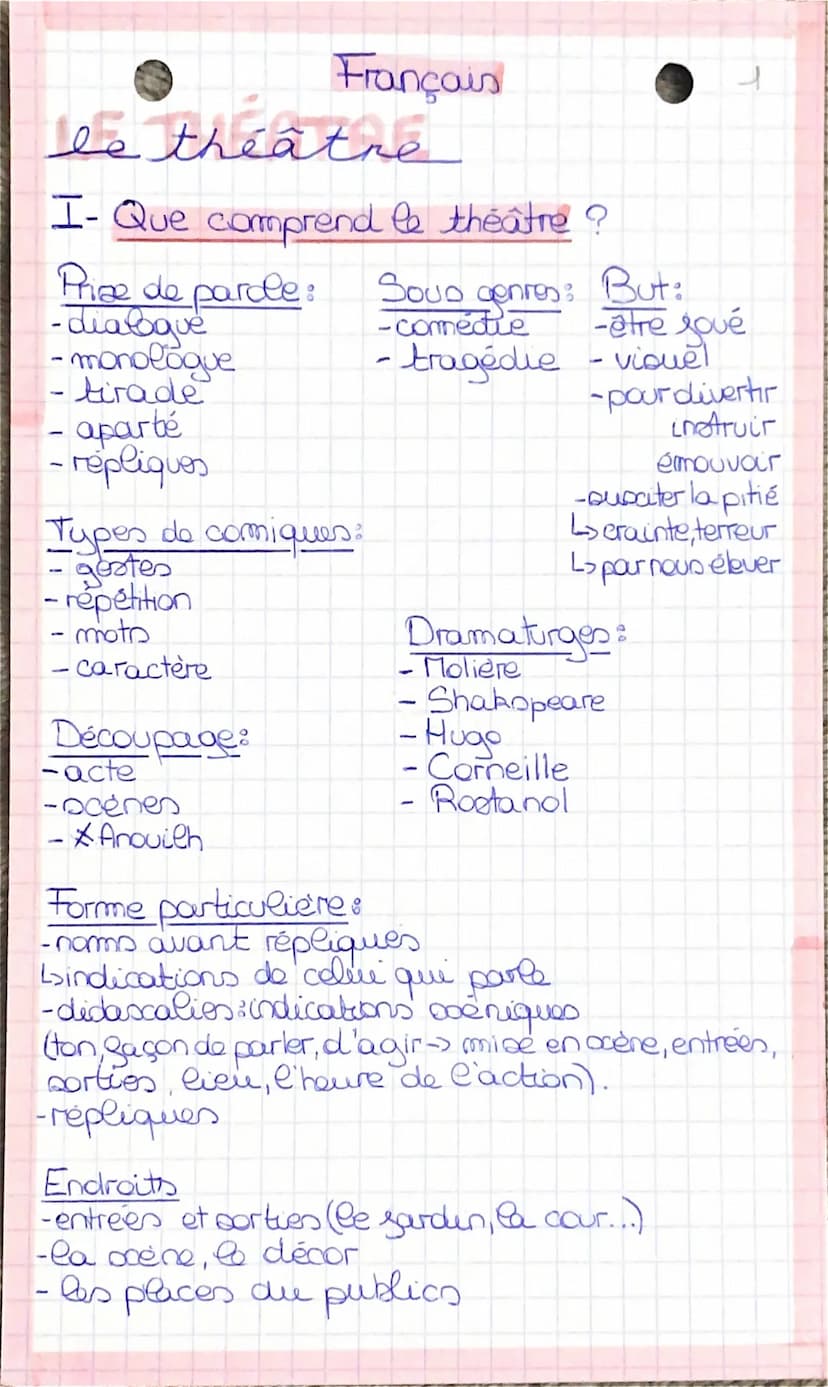 Français
1
LE THÉÂTRE
le théâtre
I- Que comprend le théâtre ?
Prise de parole:
-dialogue
-monologue
- tirade
- aparté
- répliques
Sous genres:
-comédie
- tragédie
But:
-être joué
- visuel
-pour divertir
instruir
émouvoir
-susciter la pitié
↳crainte, terreur
↳par nous élever
Types de comiques:
- gestes
- répétition
- mots
- caractère
Dramaturges:
- Molière
- Shakspeare
- Hugo
- Corneille
- Rostanol
Découpage:
-acte
-scènes
- * Anouilh
Forme particulière:
-noms avant répliques
↳indications de celui qui parle
-didascalies: indications scéniques
(ton, façon de parler, d'agir-> mise en scène, entrées,
sorties, lieu, l'heure de l'action).
-répliques
Endroits
-entrées et sorties (le jardin, la cour...)
-la scène, le décor
- les places du publics